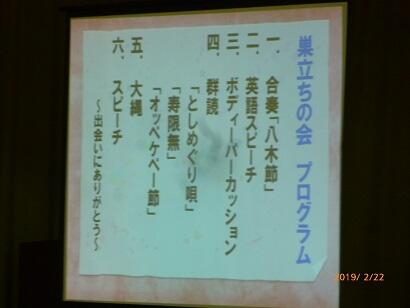 巣立ちの会 プログラム
一．合奏「八木節」
二．英語スピーチ
三．ボディーパーカッション
四．群読
「としめぐり唄」
「寿限無」
「オッペケペー節」
五．大縄
六．スピーチ
～出会いにありがとう～
2019/ 2/22